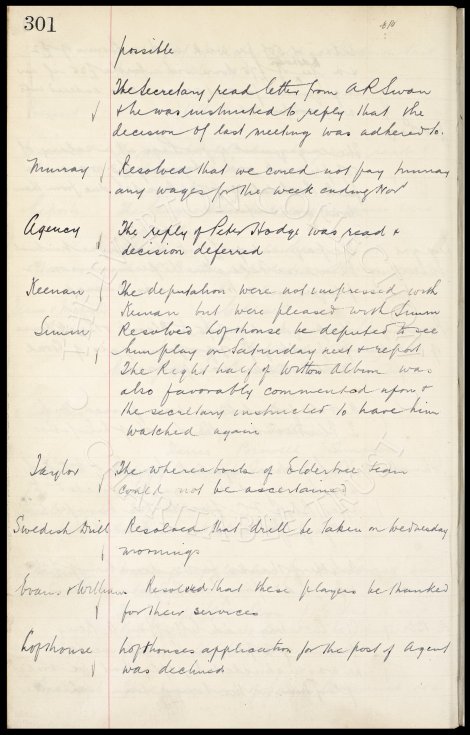 301
possible
The Secretary read letter from A R Swan
& he was instructed to reply that the
decision of last meeting was adhered to.
Murray Resolved that we could not pay Murray
any wages for the week ending Nov
Agency The reply of Peter Hodge was read &
decision deferred
Keenan The deputation were not impressed with
Keenan but were pleased with Simm
Simm Resolved Lofthouse be deputed to see
him play on Saturday next & report
The Right half of Witton Albion was
also favorably commented upon &
the secretary instructed to have him
watched again
Taylor The whereabouts of Eldertree team
could not be ascertained
Swedish Drill Resolved that drill be taken on Wednesday
mornings
Evans & William Resolved that these players be thanked
for their services
Lofthouse Lofthouses application for the post of Agent
was declined